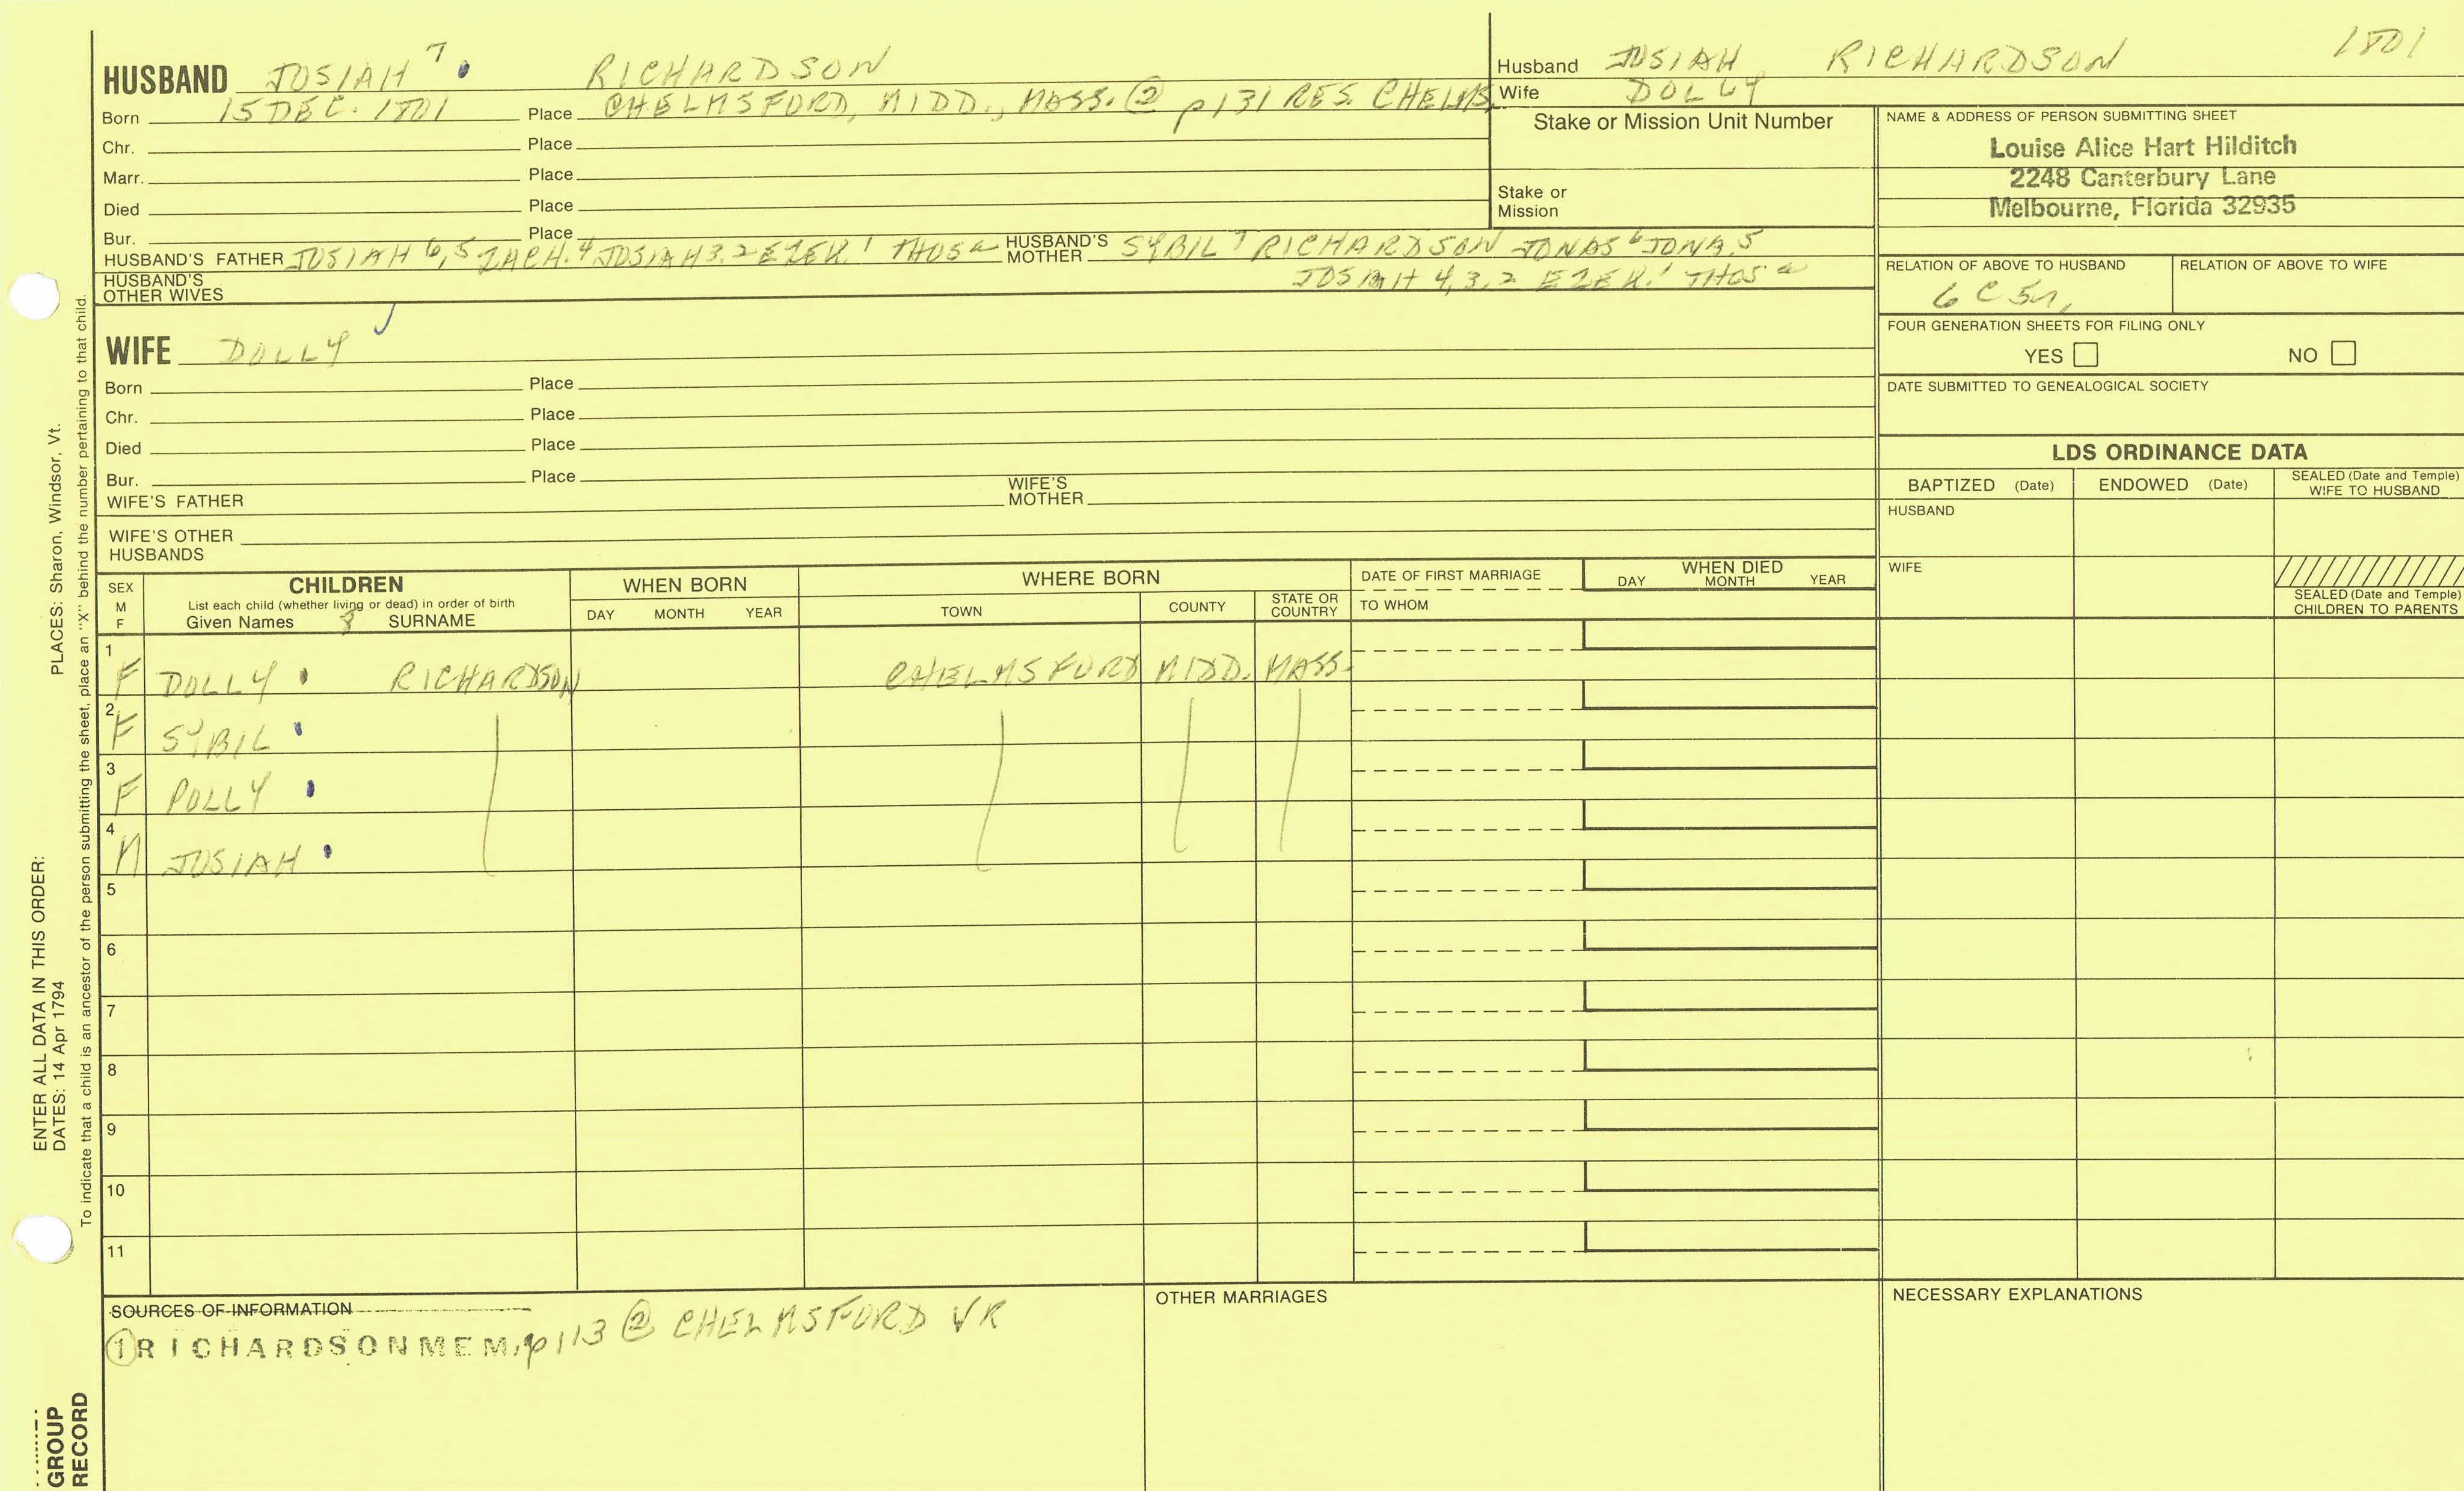 HUSBAND JOSIAH 7. RICHARDSON
Born 15 DEC. 1801 Place CHELMSFORD, MIDD., MASS. ② p131 RES. CHELMS.
Chr. Place
Marr. Place
Died Place
Bur. Place
HUSBAND'S FATHER JOSIAH 6,5 ZACH.4 JOSIAH 3,2 EZEK.1 THOS a HUSBAND'S MOTHER SYBIL 7 RICHARDSON JONAS 6 JONA. 5
JOSIAH 4,3,2 EZEK.1 THOS a
HUSBAND'S OTHER WIVES
Husband JOSIAH RICHARDSON 1801
Wife DOLLY
Stake or Mission Unit Number
Stake or Mission
NAME & ADDRESS OF PERSON SUBMITTING SHEET
Louise Alice Hart Hilditch
2248 Canterbury Lane
Melbourne, Florida 32935
RELATION OF ABOVE TO HUSBAND RELATION OF ABOVE TO WIFE
6 C 5
FOUR GENERATION SHEETS FOR FILING ONLY
YES NO
DATE SUBMITTED TO GENEALOGICAL SOCIETY
WIFE DOLLY
Born Place
Chr. Place
Died Place
Bur. Place
WIFE'S FATHER WIFE'S MOTHER
WIFE'S OTHER HUSBANDS
LDS ORDINANCE DATA
BAPTIZED (Date) ENDOWED (Date) SEALED (Date and Temple) WIFE TO HUSBAND
HUSBAND
WIFE
SEALED (Date and Temple) CHILDREN TO PARENTS
SEX M F
CHILDREN
List each child (whether living or dead) in order of birth
Given Names 8 SURNAME
WHEN BORN
DAY MONTH YEAR
WHERE BORN
TOWN COUNTY STATE OR COUNTRY
DATE OF FIRST MARRIAGE
TO WHOM
WHEN DIED
DAY MONTH YEAR
1 F DOLLY RICHARDSON CHELMSFORD MIDD. MASS.
2 F SYBIL
3 F POLLY
4 M JOSIAH
5
6
7
8
9
10
11
SOURCES OF INFORMATION
① RICHARDSON MEM, p113 ② CHELMSFORD VR
OTHER MARRIAGES
NECESSARY EXPLANATIONS
ENTER ALL DATA IN THIS ORDER:
DATES: 14 Apr 1794 PLACES: Sharon, Windsor, Vt.
To indicate that a child is an ancestor of the person submitting the sheet, place an "X" behind the number pertaining to that child.
GROUP
RECORD